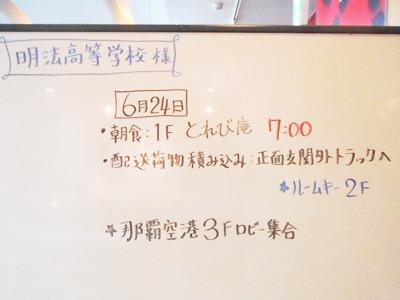 明法高等学校 様
6月24日
・朝食:1F とれび庵 7:00
・配送荷物積み込み:正面玄関外トラックへ
*ルームキー 2F
*那覇空港3Fロビー集合